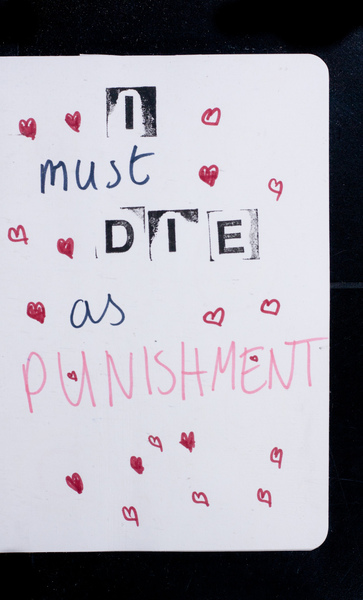 I
must
DIE
as
PUNISHMENT